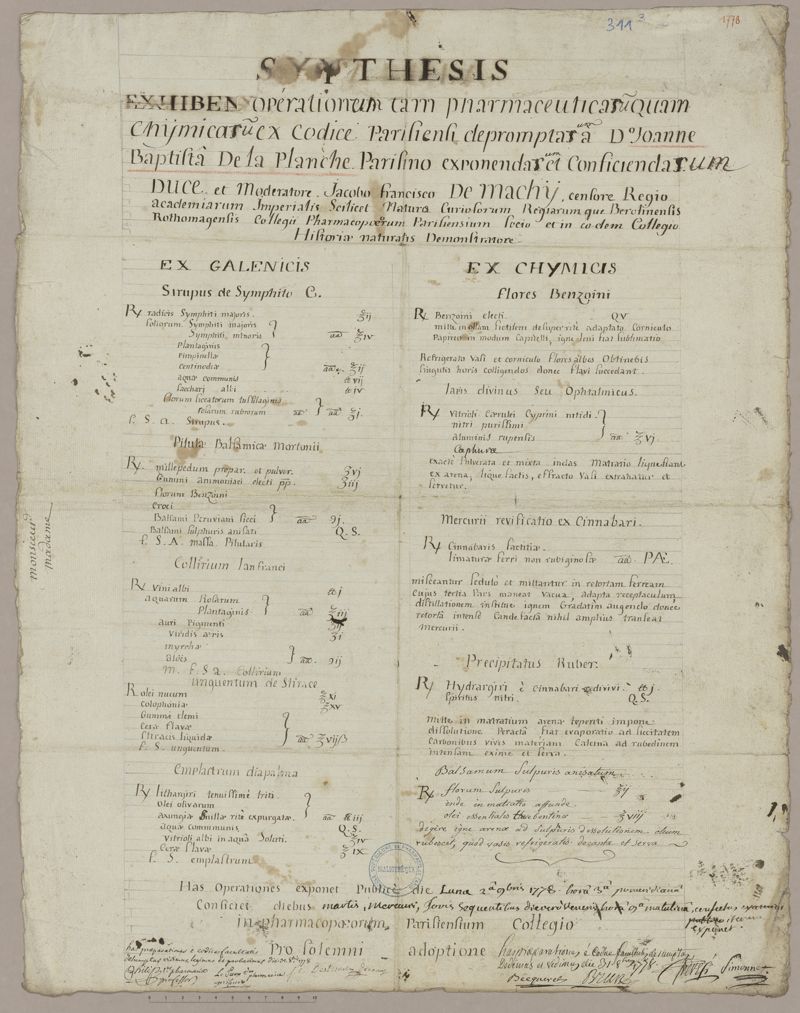 311
1778
SYNTHESIS
EXHIBENS operationum tam pharmaceuticarū quam
Chymicarū ex Codice Parisiensi depromptarum a Do. Joanne
Baptistâ De la Planche Parisino exponendarum et Conficiendarum
DUCE et Moderatore Jacobo francisco De Machy, censore Regio
academiarum Imperialis Scilicet Naturæ Curiosorum Regiarum que Berolinensis
Rothomagensis Collegii Pharmacopœorum Parisiensium socio et in eodem Collegio
Historiæ naturalis Demonstratore
EX GALENICIS
Sirupus de Symphito C.
℞ radicis Symphiti majoris ℥ij
foliorum Symphiti majoris
Symphiti minoris aa ℥iv
Plantaginis
Pimpinellæ
Centinodiæ aa ℥ij
aquæ communis ℔vij
sacchari albi ℔iv
florum siccatorum tussilaginis
rosarum rubrarum aa ℥j.
f. S. a. Sirupus.
Pilulæ Balsamicæ Mortonii
℞ millepedum præpar. et pulver. ʒvj
Gummi ammoniaci electi pp. ʒiij
florum Benzoini
Croci
Balsami Peruviani sicci aa ℈j.
Balsami sulphuris anisati Q.S.
f. S. A. massa Pilularis
Collirium Lanfranci
℞ Vini albi ℔j
aquarum Rosarum
Plantaginis aa ℥iij
auri Pigmenti
Viridis æris ʒi
myrrhæ
aloës aa ℈ij
M. f. S. a. Collirium
Unguentum de Stirace
℞ olei nucum ℥xi
Colophoniæ ℥xv
Gummi elemi
Ceræ flavæ
Stiracis liquidæ aa ℥vijß
f. S. unguentum.
Emplastrum diapalma
℞ lithargiri tenuissime triti
Olei olivarum
axungiæ suillæ rite expurgatæ aa ℔iij
aquæ communis Q.S.
Vitrioli albi in aquâ soluti ℥iv
Ceræ flavæ ℥ix
f. S. emplastrum
EX CHYMICIS
flores Benzoini
℞ Benzoini electi QV
mitte in ollam fictilem desuper rite adaptato Corniculo
Papyraceo in modum Capitelli, igne leni fiat sublimatio
Refrigerato Vasi et corniculo flores albos Obtinebis
singulis horis colligendos donec flavi succedant.
Lapis divinus Seu Ophtalmicus.
℞ Vitrioli Cœrulei Cyprini nitidi
nitri purissimi
aluminis rupensis aa ℥vj
Caphuræ
exacte pulverata et mixta in Matracio liquefiant
ex arena, liquefactis, effracto vasi extrahatur et
servetur.
Mercurii revificatio ex Cinnabari.
℞ Cinnabaris factitiæ
limaturæ ferri non rubiginosæ aa PÆ.
misceantur sedulo et mittantur in retortam ferream
Cujus tertia Pars maneat vacua, adapta receptaculum
distillationem institue ignem Gradatim augendo donec
retorta intense Candefacta nihil amplius transeat
Mercurii.
Precipitatus Ruber.
℞ Hydrargiri è Cinnabari redivivi ℔j
Spiritus nitri Q.S.
Mitte in matratium arena tepenti impone
dissolutione Peracta fiat evaporatio ad siccitatem
Carbonibus vivis materiam Calcina ad rubedinem
intensam exime et serva.
Balsamum Sulphuris anisatum
℞ florum Sulphuris ℥ij
inde in matratio affunde
olei essentialis therebentinæ ℥viij
digere igne arenæ ad sulphuris dissolutionem oleum
rubescet, quod vasis refrigeratis decanta et serva
monsieur
madame
Has Operationes exponet Publice die Lunæ 2a 9bris 1778 horâ 3a pomeridianâ
Conficiet diebus martis, Mercurii, Jovis Sequentibus die vero Veneris horâ 9a matutina, confectas
exponet
in pharmacopœorum Parisiensium Collegio
Pro solemni adoptione
Becqueret
Brun
Simonnet